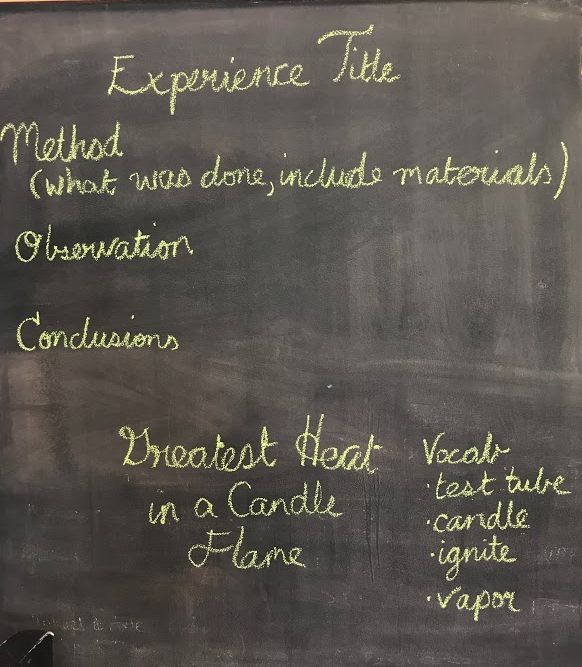 Experience Title
Method
(what was done, include materials)
Observation
Conclusions
Greatest Heat
in a Candle
Flame
Vocab
· test tube
· candle
· ignite
· vapor